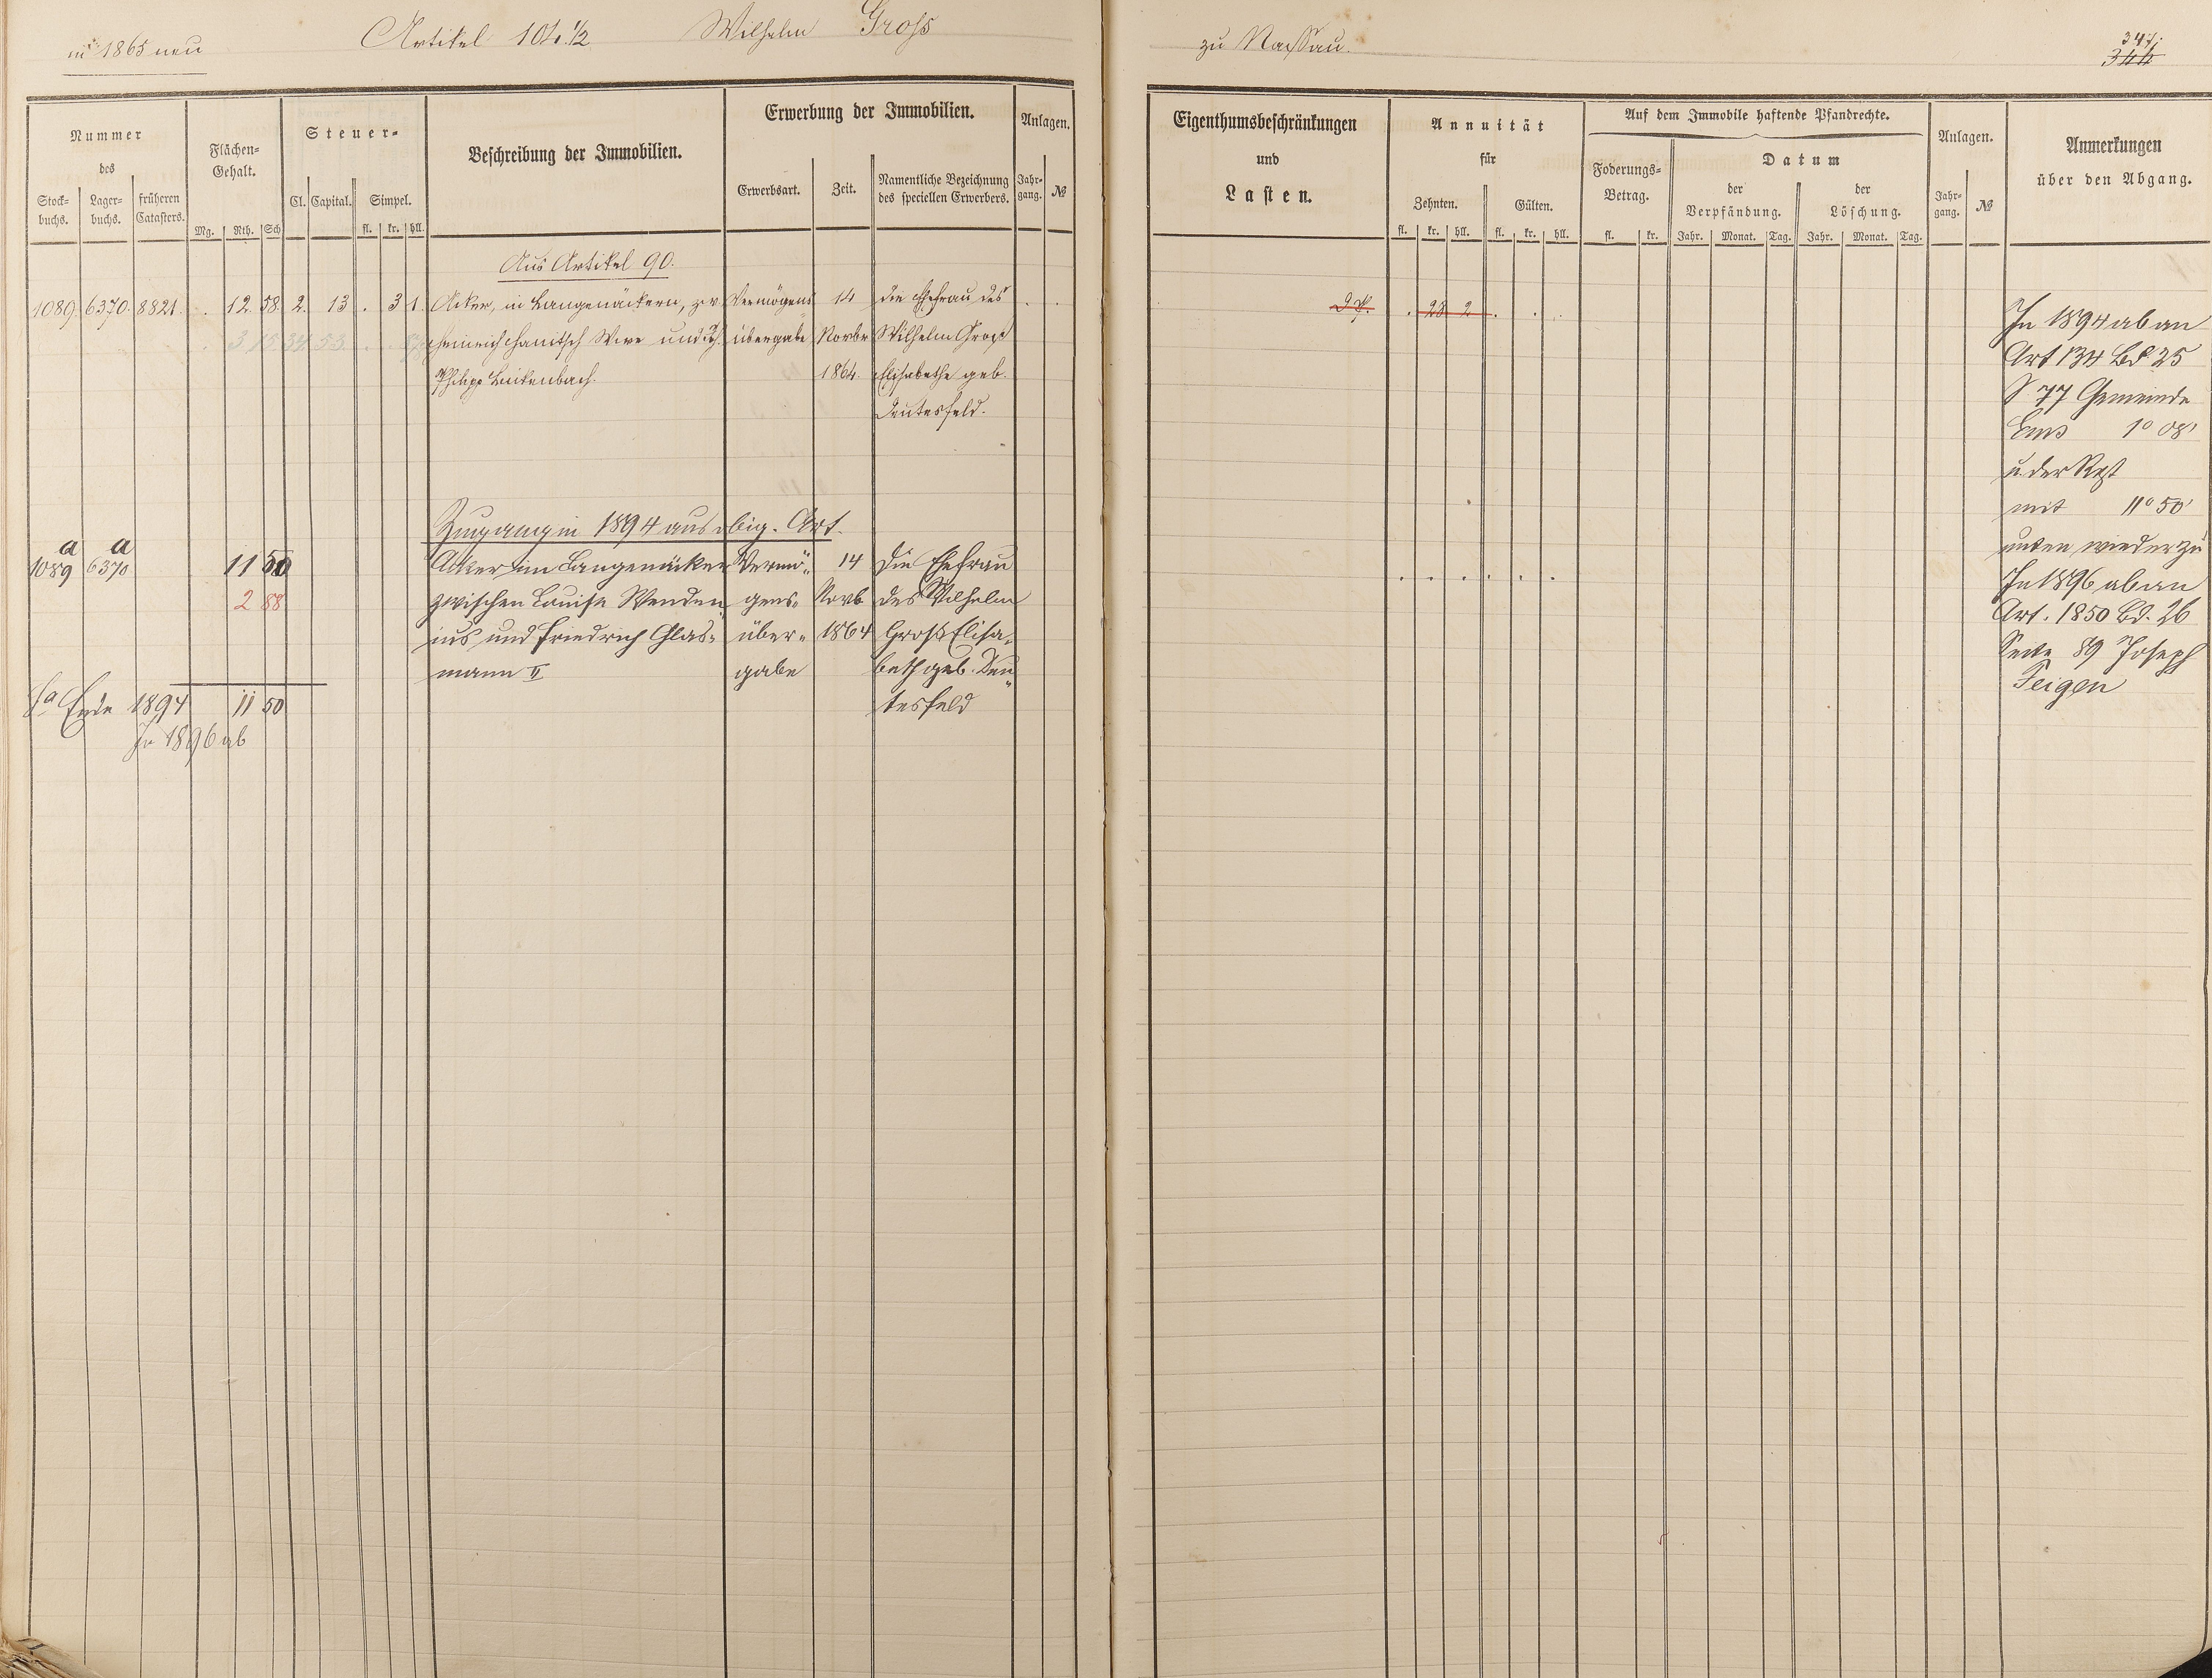 in 1865 neu
Artikel 104 1/2 Wilhelm Groß
zu Nassau.
347.
344
Nummer
des
Stock-
buchs.
Lager-
buchs.
früheren
Catasters.
Flächen-
Gehalt.
Mg. Rth. Sch
Steuer-
Cl. Capital. Simpel.
fl. kr. hll.
Beschreibung der Immobilien.
Erwerbung der Immobilien.
Erwerbsart. Zeit.
Namentliche Bezeichnung
des speciellen Erwerbers.
Anlagen.
Jahr-
gang. №
Eigenthumsbeschränkungen
und
Lasten.
Annuität
für
Zehnten. Gülten.
fl. kr. hll. fl. kr. hll.
Auf dem Immobile haftende Pfandrechte.
Foderungs-
Betrag.
fl. kr.
Datum
der
Verpfändung.
der
Löschung.
Jahr. Monat. Tag. Jahr. Monat. Tag.
Anlagen.
Jahr-
gang. №
Anmerkungen
über den Abgang.
Aus Artikel 90.
1089. 6370. 8821. . 12. 58. 2. 13 . 3 1. Acker, in Langenäckern, zw. Vermögens 14 die Ehefrau des . .
Heinrich Wwe und übergabe Novbr Wilhelm Groß
Philipp 1864. Elisabethe geb.
Deutesfeld.
. 28 2 . . .
Zugang in 1894 aus obig. Art.
a a
1089 6370 11 50 Acker im Langenäcker Vermö- 14 Die Ehefrau
2 88 zwischen Louise Wenden gens- Novb des Wilhelm
ius und Friedrich Glas- über- 1864 Groß Elisa-
mann II gabe beth geb. Deu
tesfeld
Sa Ende 1894 11 50
In 1896 ab
In 1894 ab an
Art 134 Bd 25
S 77 Gemeinde
Ems 1° 08'
u. der Rest
mit 11° 50'
unten wieder zu
In 1896 ab an
Art. 1850 Bd. 26
Seite 89 Joseph
Feigen